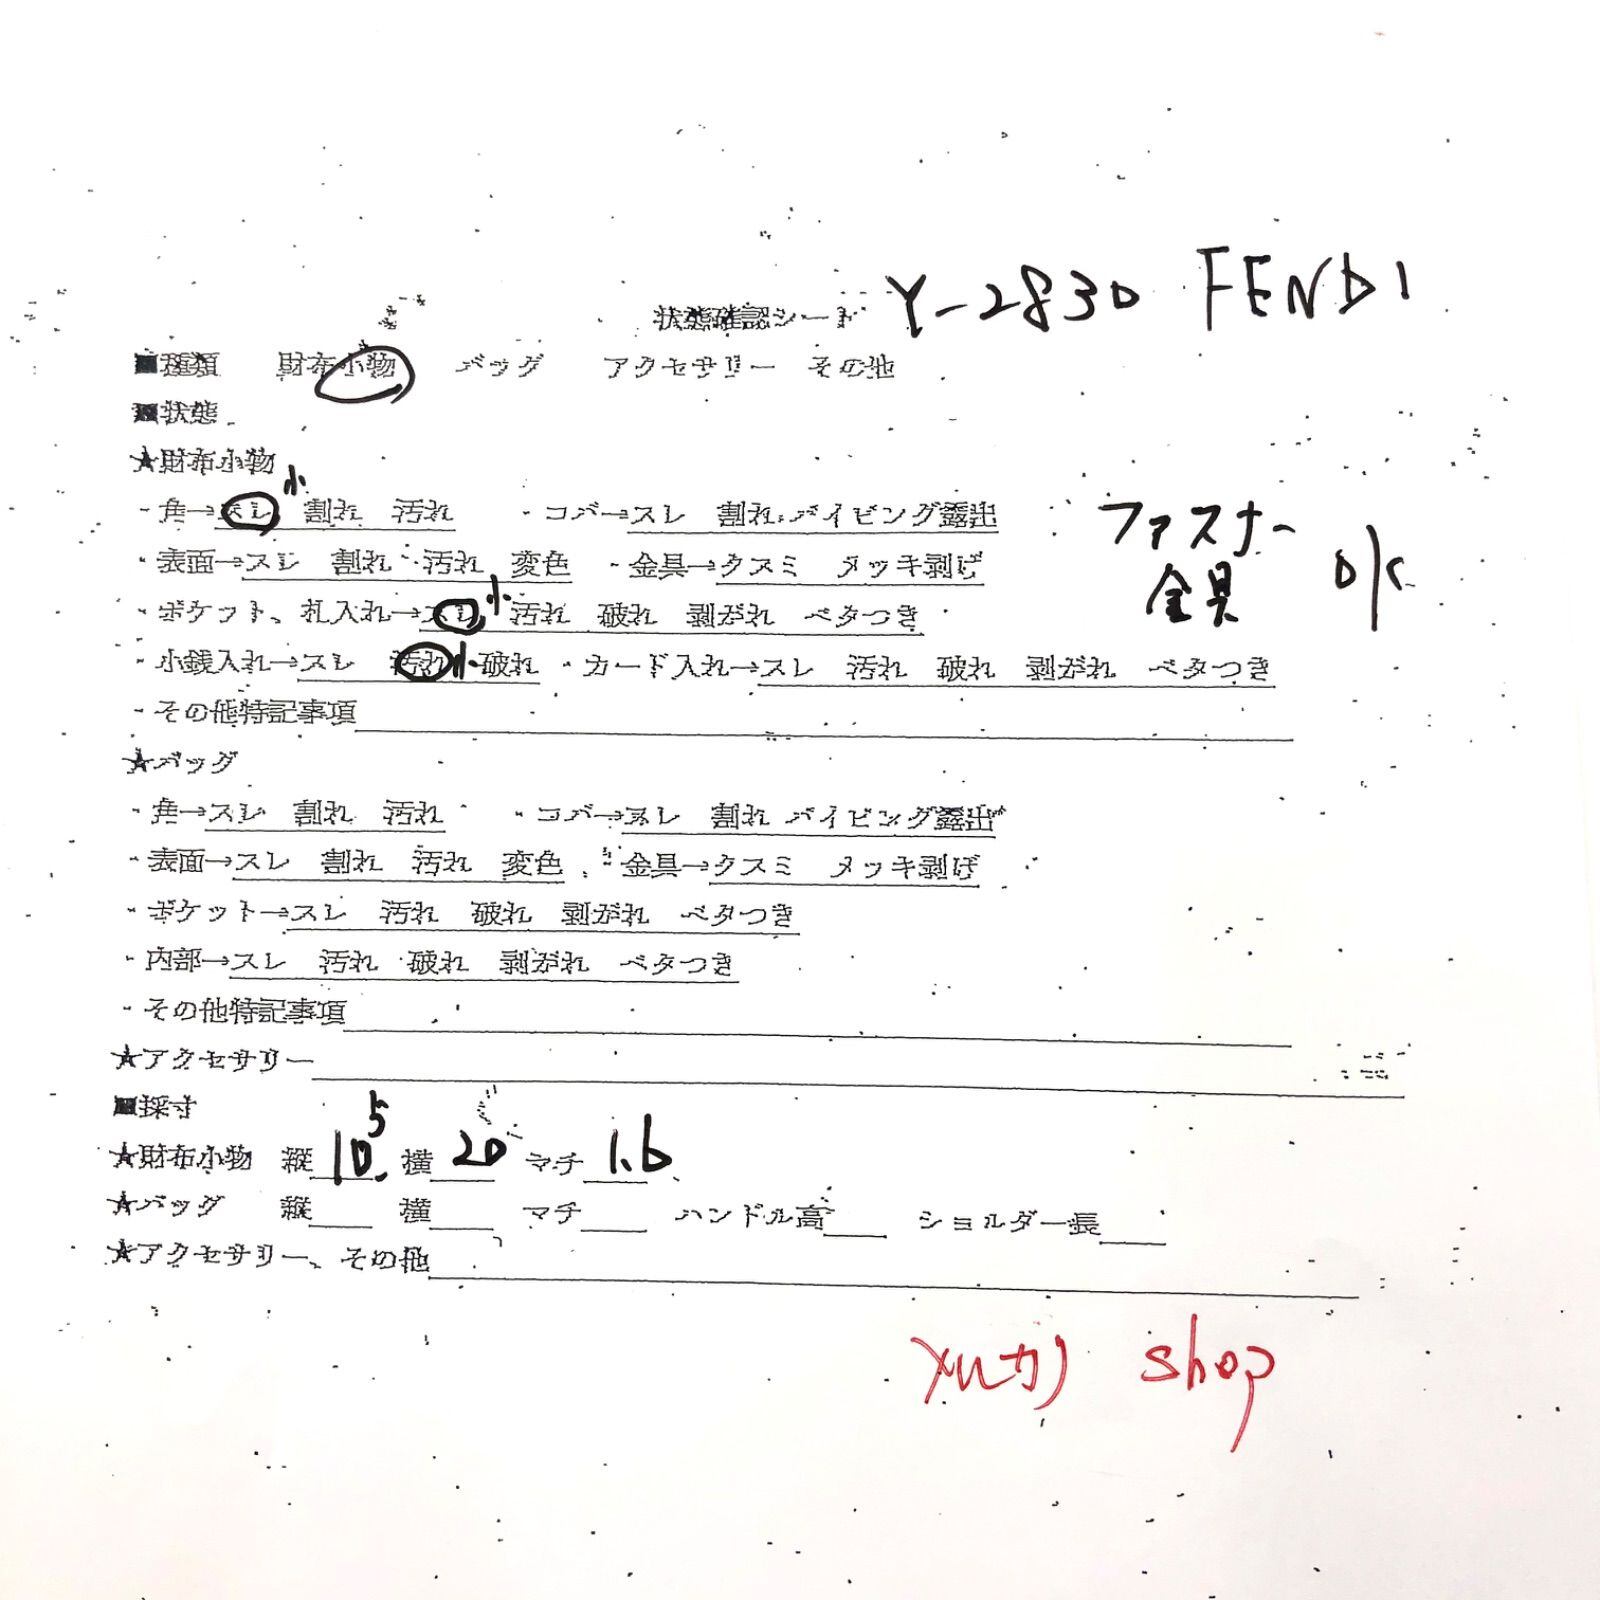 状態確認シート Y-2830 FENDI
■種類 財布小物 バッグ アクセサリー その他
■状態
★財布小物
・角→スレ 小 割れ 汚れ ・コバ→スレ 割れ パイピング露出
ファスナー
・表面→スレ 割れ 汚れ 変色 ・金具→クスミ メッキ剥げ
金具 OK
・ポケット、札入れ→スレ 小 汚れ 破れ 剥がれ ベタつき
・小銭入れ→スレ 汚れ 小 破れ ・カード入れ→スレ 汚れ 破れ 剥がれ ベタつき
・その他特記事項
★バッグ
・角→スレ 割れ 汚れ ・コバ→スレ 割れ パイピング露出
・表面→スレ 割れ 汚れ 変色 ・金具→クスミ メッキ剥げ
・ポケット→スレ 汚れ 破れ 剥がれ ベタつき
・内部→スレ 汚れ 破れ 剥がれ ベタつき
・その他特記事項
★アクセサリー
■採寸
★財布小物 縦 10.5 横 20 マチ 1.6
★バッグ 縦 横 マチ ハンドル高 ショルダー長
★アクセサリー、その他
メルカリ shop